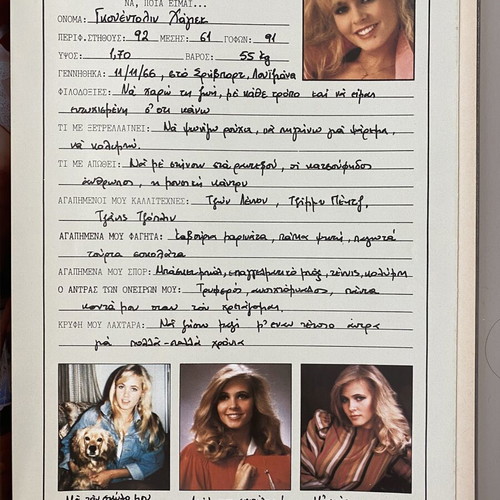 ΝΑ, ΠΟΙΑ ΕΙΜΑΙ...
ΟΝΟΜΑ: Γκουέντολιν Χάγιεκ
ΠΕΡΙΦ. ΣΤΗΘΟΥΣ: 92 ΜΕΣΗΣ: 61 ΓΟΦΩΝ: 91
ΥΨΟΣ: 1,70 ΒΑΡΟΣ: 55 kg
ΓΕΝΝΗΘΗΚΑ: 11/11/66, στο Σρέβπορτ, Λουϊζιάνα
ΦΙΛΟΔΟΞΙΕΣ: Να χαρώ τη ζωή, με κάθε τρόπο και να είμαι
ευτυχισμένη σ' ότι κάνω
ΤΙ ΜΕ ΞΕΤΡΕΛΛΑΙΝΕΙ: Να ψωνίζω ρούχα, να πηγαίνω για ψάρεμα,
να κολυμπώ.
ΤΙ ΜΕ ΑΠΩΘΕΙ: Να με στήνουν στα ραντεβού, οι κατσούφηδες
άνθρωποι, η μουσική κάντρυ
ΑΓΑΠΗΜΕΝΟΙ ΜΟΥ ΚΑΛΛΙΤΕΧΝΕΣ: Τζων Λένον, Τζίμμυ Πέητζ,
Τζάνις Τζόπλιν
ΑΓΑΠΗΜΕΝΑ ΜΟΥ ΦΑΓΗΤΑ: Καβούρια μαρινάτα, πάπια ψητή, παγωτά
τούρτα σοκολάτα
ΑΓΑΠΗΜΕΝΑ ΜΟΥ ΣΠΟΡ: Μπάσκετμπωλ, επαγγελματικό μποξ, τέννις, κολύμπι
Ο ΑΝΤΡΑΣ ΤΩΝ ΟΝΕΙΡΩΝ ΜΟΥ: Τρυφερός, πάντα
κοντά μου όταν τον χρειάζομαι
ΚΡΥΦΗ ΜΟΥ ΛΑΧΤΑΡΑ: Να ζήσω μαζί μ' έναν τέτοιο άντρα
για πολλά-πολλά χρόνια
Με τον σκύλο μου